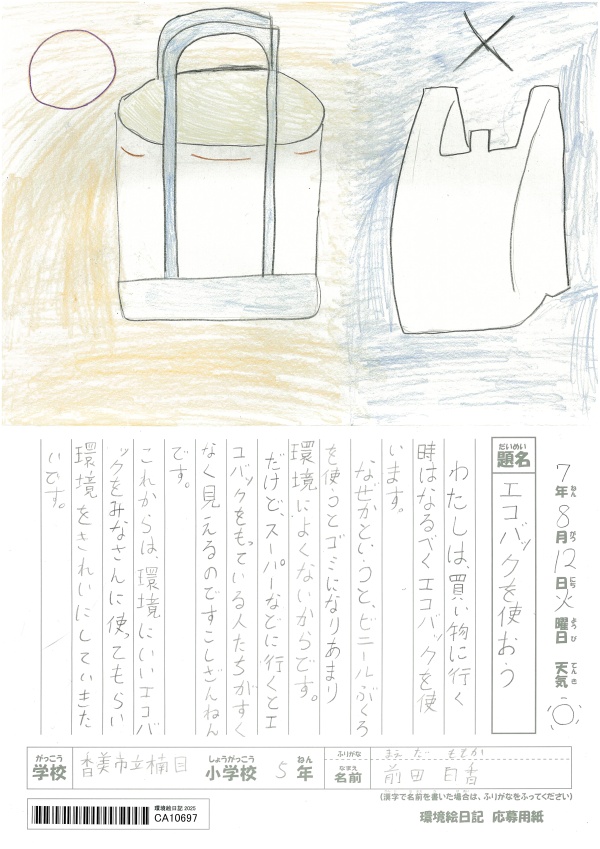 7年8月12日火曜日 天気
ねん がつ にち ようび てんき
だいめい
題名 エコバックを使おう
わたしは、買い物に行く
時はなるべくエコバックを使
います。
なぜかというと、ビニールぶくろ
を使うとゴミになりあまり
環境によくないからです。
だけど、スーパーなどに行くとエ
コバックをもている人たちがすく
なく見えるのですこしざんねん
です。
これからは、環境にいいエコバ
ックをみなさんに使ってもらい
環境をきれいにしていきた
いです。
がっこう しょうがっこう ねん ふりがな まえ だ ももか
学校 香美市立楠目 小学校 5年 なまえ 名前 前田
(漢字で名前を書いた場合は、ふりがなをふってください)
環境絵日記 応募用紙
環境絵日記 2025
CA10697